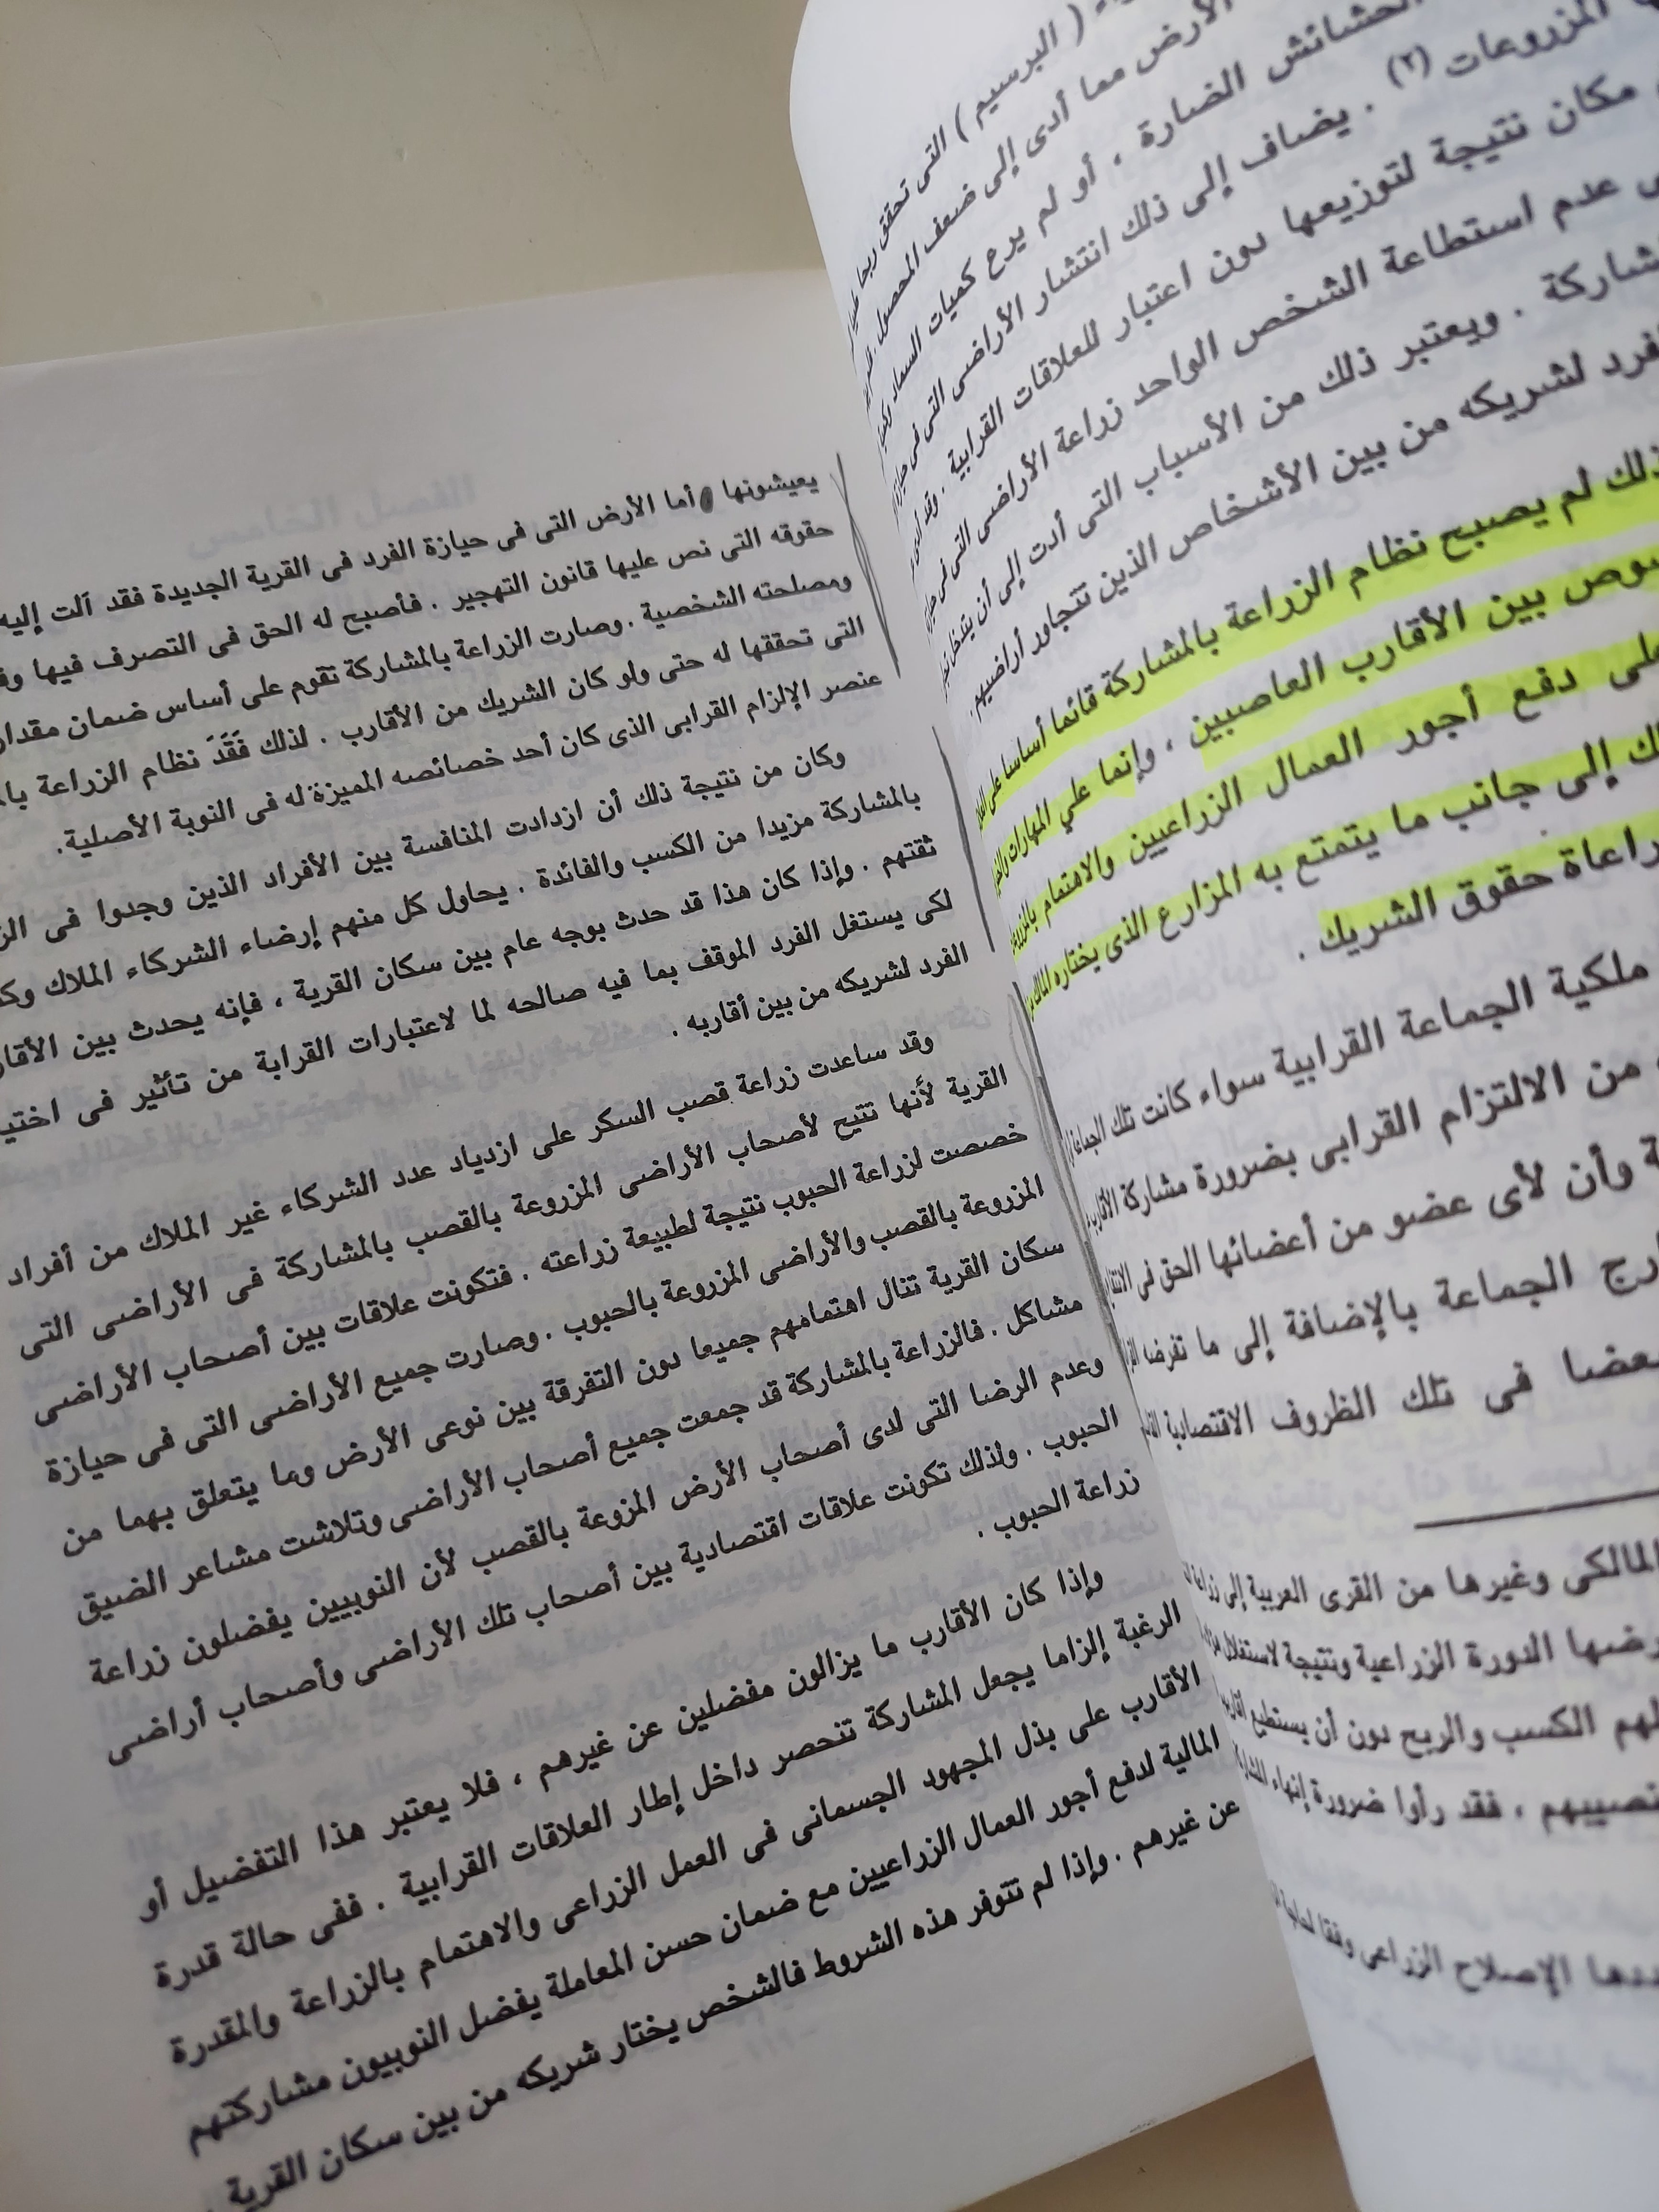 ( البرسيم ) التى تحقق ربحا
الأرض مما أدى إلى ضعف المحصول
الحشائش الضارة ، أو لم يرع كميات السماد
المزروعات (٢) . يضاف إلى ذلك انتشار الأراضى التى فى
مكان نتيجة لتوزيعها دون اعتبار للعلاقات القرابية . وقد
عدم استطاعة الشخص الواحد زراعة الأراضى التى فى
. ويعتبر ذلك من الأسباب التى أدت إلى أن
لشريكه من بين الأشخاص الذين تتجاور أراضيهم .
لم يصبح نظام الزراعة بالمشاركة قائما أساسا على
بين الأقارب العاصبين ، وإنما علي المهارات
دفع أجور العمال الزراعيين والاهتمام
إلى جانب ما يتمتع به المزارع الذى يختاره المالك
حقوق الشريك .
ملكية الجماعة القرابية سواء كانت تلك الجماعة
من الالتزام القرابى بضرورة مشاركة
وأن لأى عضو من أعضائها الحق فى
الجماعة بالإضافة إلى ما تفرضه
فى تلك الظروف الاقتصادية
المالكى وغيرها من القرى العربية إلى
الدورة الزراعية ونتيجة لاستغلال
لهم الكسب والربح دون أن يستطيع
، فقد رأوا ضرورة إنهاء
الإصلاح الزراعى وفقا
يعيشونها . أما الأرض التى فى حيازة الفرد فى القرية الجديدة فقد آلت إليه
حقوقه التى نص عليها قانون التهجير . فأصبح له الحق فى التصرف فيها
ومصلحته الشخصية . وصارت الزراعة بالمشاركة تقوم على أساس ضمان مقدار
التى تحققها له حتى ولو كان الشريك من الأقارب . لذلك فَقَدَ نظام الزراعة
عنصر الإلزام القرابى الذى كان أحد خصائصه المميزة له فى النوبة الأصلية.
وكان من نتيجة ذلك أن ازدادت المنافسة بين الأفراد الذين وجدوا فى
بالمشاركة مزيدا من الكسب والفائدة . يحاول كل منهم إرضاء الشركاء الملاك
ثقتهم . وإذا كان هذا قد حدث بوجه عام بين سكان القرية ، فإنه يحدث بين
لكى يستغل الفرد الموقف بما فيه صالحه لما لاعتبارات القرابة من تأثير فى
الفرد لشريكه من بين أقاربه .
وقد ساعدت زراعة قصب السكر على ازدياد عدد الشركاء غير الملاك من أفراد
القرية لأنها تتيح لأصحاب الأراضى المزروعة بالقصب بالمشاركة فى الأراضى التى
خصصت لزراعة الحبوب نتيجة لطبيعة زراعته . فتكونت علاقات بين أصحاب الأراضى
المزروعة بالقصب والأراضى المزروعة بالحبوب . وصارت جميع الأراضى التى فى حيازة
سكان القرية تنال اهتمامهم جميعا دون التفرقة بين نوعى الأرض وما يتعلق بهما من
مشاكل . فالزراعة بالمشاركة قد جمعت جميع أصحاب الأراضى وتلاشت مشاعر الضيق
وعدم الرضا التى لدى أصحاب الأرض المزوعة بالقصب لأن النوبيين يفضلون زراعة
الحبوب . ولذلك تكونت علاقات اقتصادية بين أصحاب تلك الأراضى وأصحاب أراضى
زراعة الحبوب .
وإذا كان الأقارب ما يزالون مفضلين عن غيرهم ، فلا يعتبر هذا التفضيل أو
الرغبة إلزاما يجعل المشاركة تنحصر داخل إطار العلاقات القرابية . ففى حالة قدرة
الأقارب على بذل المجهود الجسمانى فى العمل الزراعى والاهتمام بالزراعة والمقدرة
المالية لدفع أجور العمال الزراعيين مع ضمان حسن المعاملة يفضل النوبيون مشاركتهم
عن غيرهم . وإذا لم تتوفر هذه الشروط فالشخص يختار شريكه من بين سكان القرية .